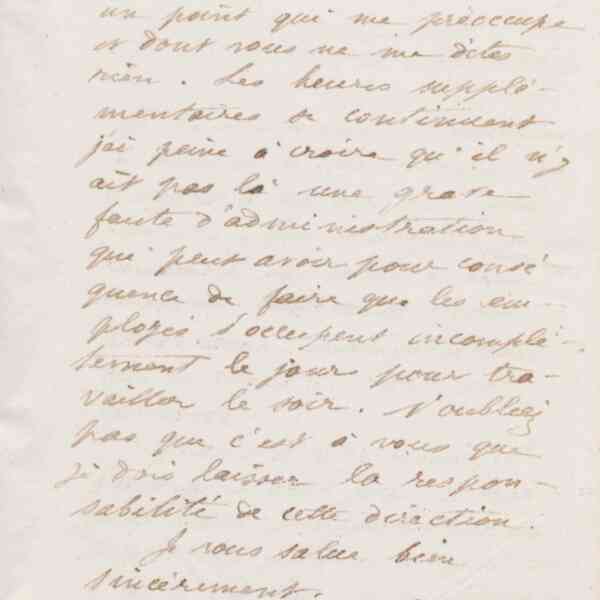 un point qui me préoccupe
et dont vous ne me dites
rien. Les heures supplé-
mentaires se continuent
j'ai peine à croire qu'il n'y
ait pas là une grave
faute d'administration
qui peut avoir pour consé-
quence de faire que les em-
ployés s'occupent incomplè-
tement le jour pour tra-
vailler le soir. N'oubliez
pas que c'est à vous que
je dois laisser la respon-
sabilité de cette direction.
Je vous salue bien
sincèrement.